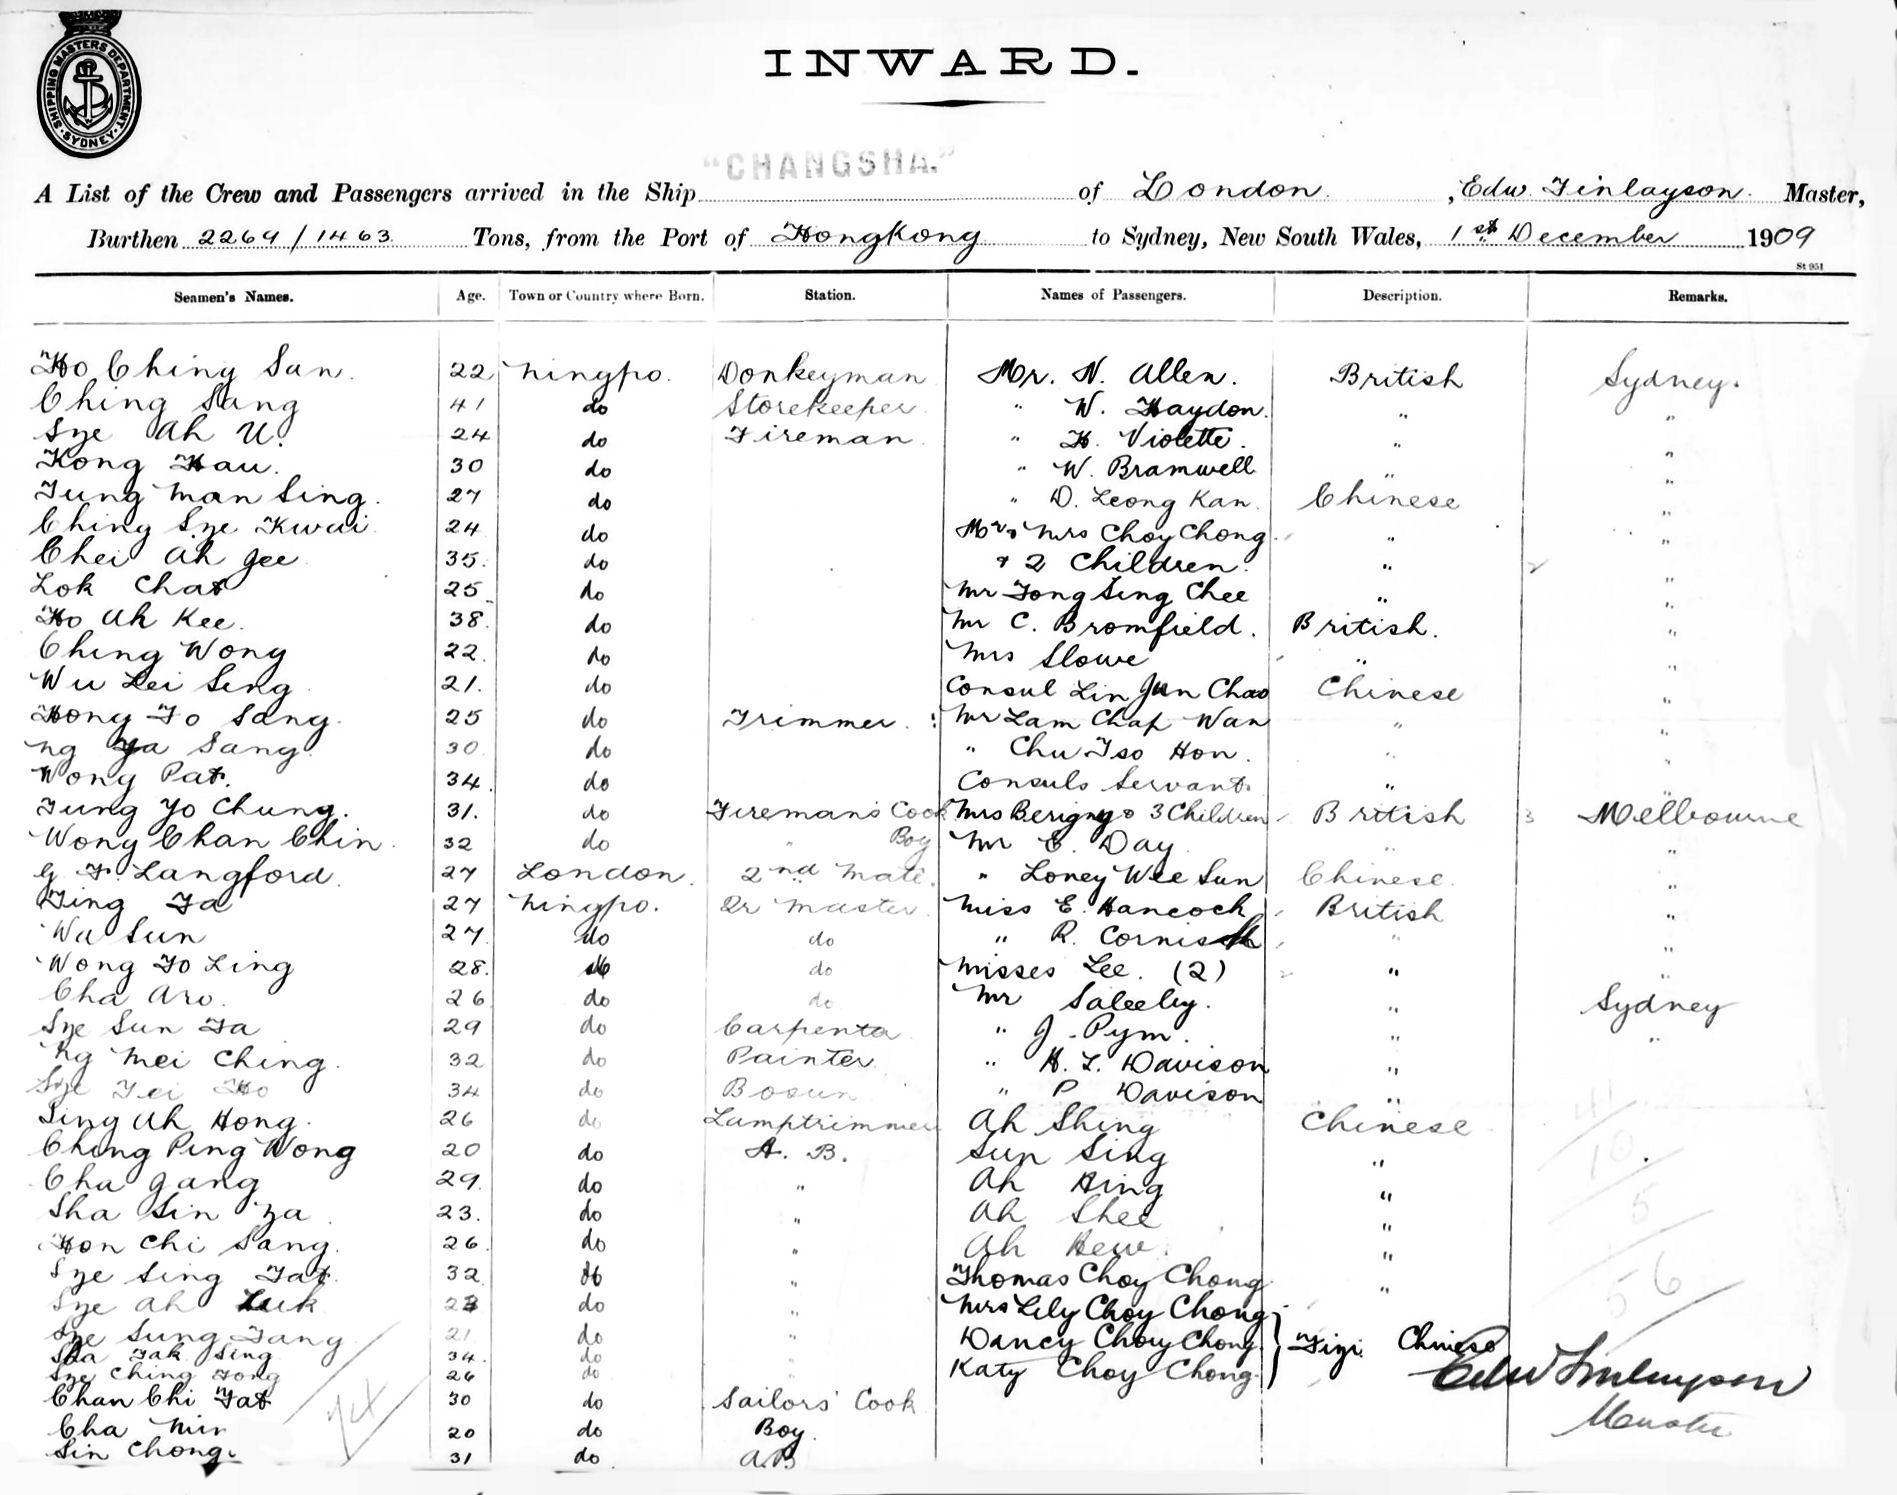 SHIPPING MASTERS DEPARTMENT. SYDNEY.
INWARD.
"CHANGSHA."
A List of the Crew and Passengers arrived in the Ship of London, Edw. Finlayson Master,
Burthen 2269/1463 Tons, from the Port of Hongkong to Sydney, New South Wales, 1st December 1909
St 951
Seamen's Names. Age. Town or Country where Born. Station. Names of Passengers. Description. Remarks.
Ho Ching San. 22 Ningpo. Donkeyman Mr. N. Allen. British Sydney.
Ching Sang 41 do Storekeeper " W. Haydon. " "
Sye Ah U. 24 do Fireman " H. Violette. " "
Kong Hau. 30 do " W. Bramwell " "
Fung Man Sing. 27 do " D. Leong Kan. Chinese "
Ching Sye Kwai 24 do Mr & Mrs Choy Chong " "
Chei Ah Gee 35. do & 2 Children. " "
Lok Chat 25 do Mr Fong Sing Chee " "
Ho Ah Kee. 38. do Mr C. Bromfield. British. "
Ching Wong 22. do Mrs Slowe " "
Wu Lei Sing 21. do Consul Lin Jun Chao Chinese "
Hong Fo Sang. 25 do Trimmer. Mr Lam Chap Wan " "
Ng Ya Sang. 30 do " Chu Tso Hon. " "
Wong Pat. 34. do Consuls Servant. " "
Fung Yo Chung. 31. do Fireman's Cook Mrs Berigny & 3 Children British 3 Melbourne
Wong Chan Chin. 32 do " Boy Mr E. Day " "
G. F. Langford. 27 London. 2nd Mate. " Loney Wee Sun Chinese. "
Ting Fa 27 Ningpo. Qr Master Miss E. Hancock British "
Wa Sun 27 do do " R. Cornish " "
Wong Fo Ling 28. do do Misses Lee. (2) 2 " "
Cha Aro. 26 do do Mr Saleeby. " Sydney
Sye Sun Fa 29 do Carpenter " J. Pym. " "
Ng Mei Ching. 32 do Painter " H. L. Davison "
Sye Fei Ho 34 do Bosun " P Davison "
Sing Ah Hong. 26 do Lamptrimmer Ah Shing Chinese 41
Ching Ping Wong 20 do A. B. Sun Sing " 10.
Cha Gang 29. do " Ah Hing "
Sha Sin Za 23. do " Ah Shee " 5
Hon Chi Sang. 26. do " Ah Hew. "
Sye Sing Fat. 32 do " Thomas Choy Chong " 56
Sye Ah Luk 23 do " Mrs Lily Choy Chong
Sye Sung Fang 21 do " Dancy Choy Chong Fiji Chinese
Sha Fak Sing 34. do " Katy Choy Chong Edw Finlayson
Sye Ching Fong 26 do
Chan Chi Fat 30 do Sailors' Cook Master
Cha Min 20 do Boy.
Sin Chong. 31 do A.B